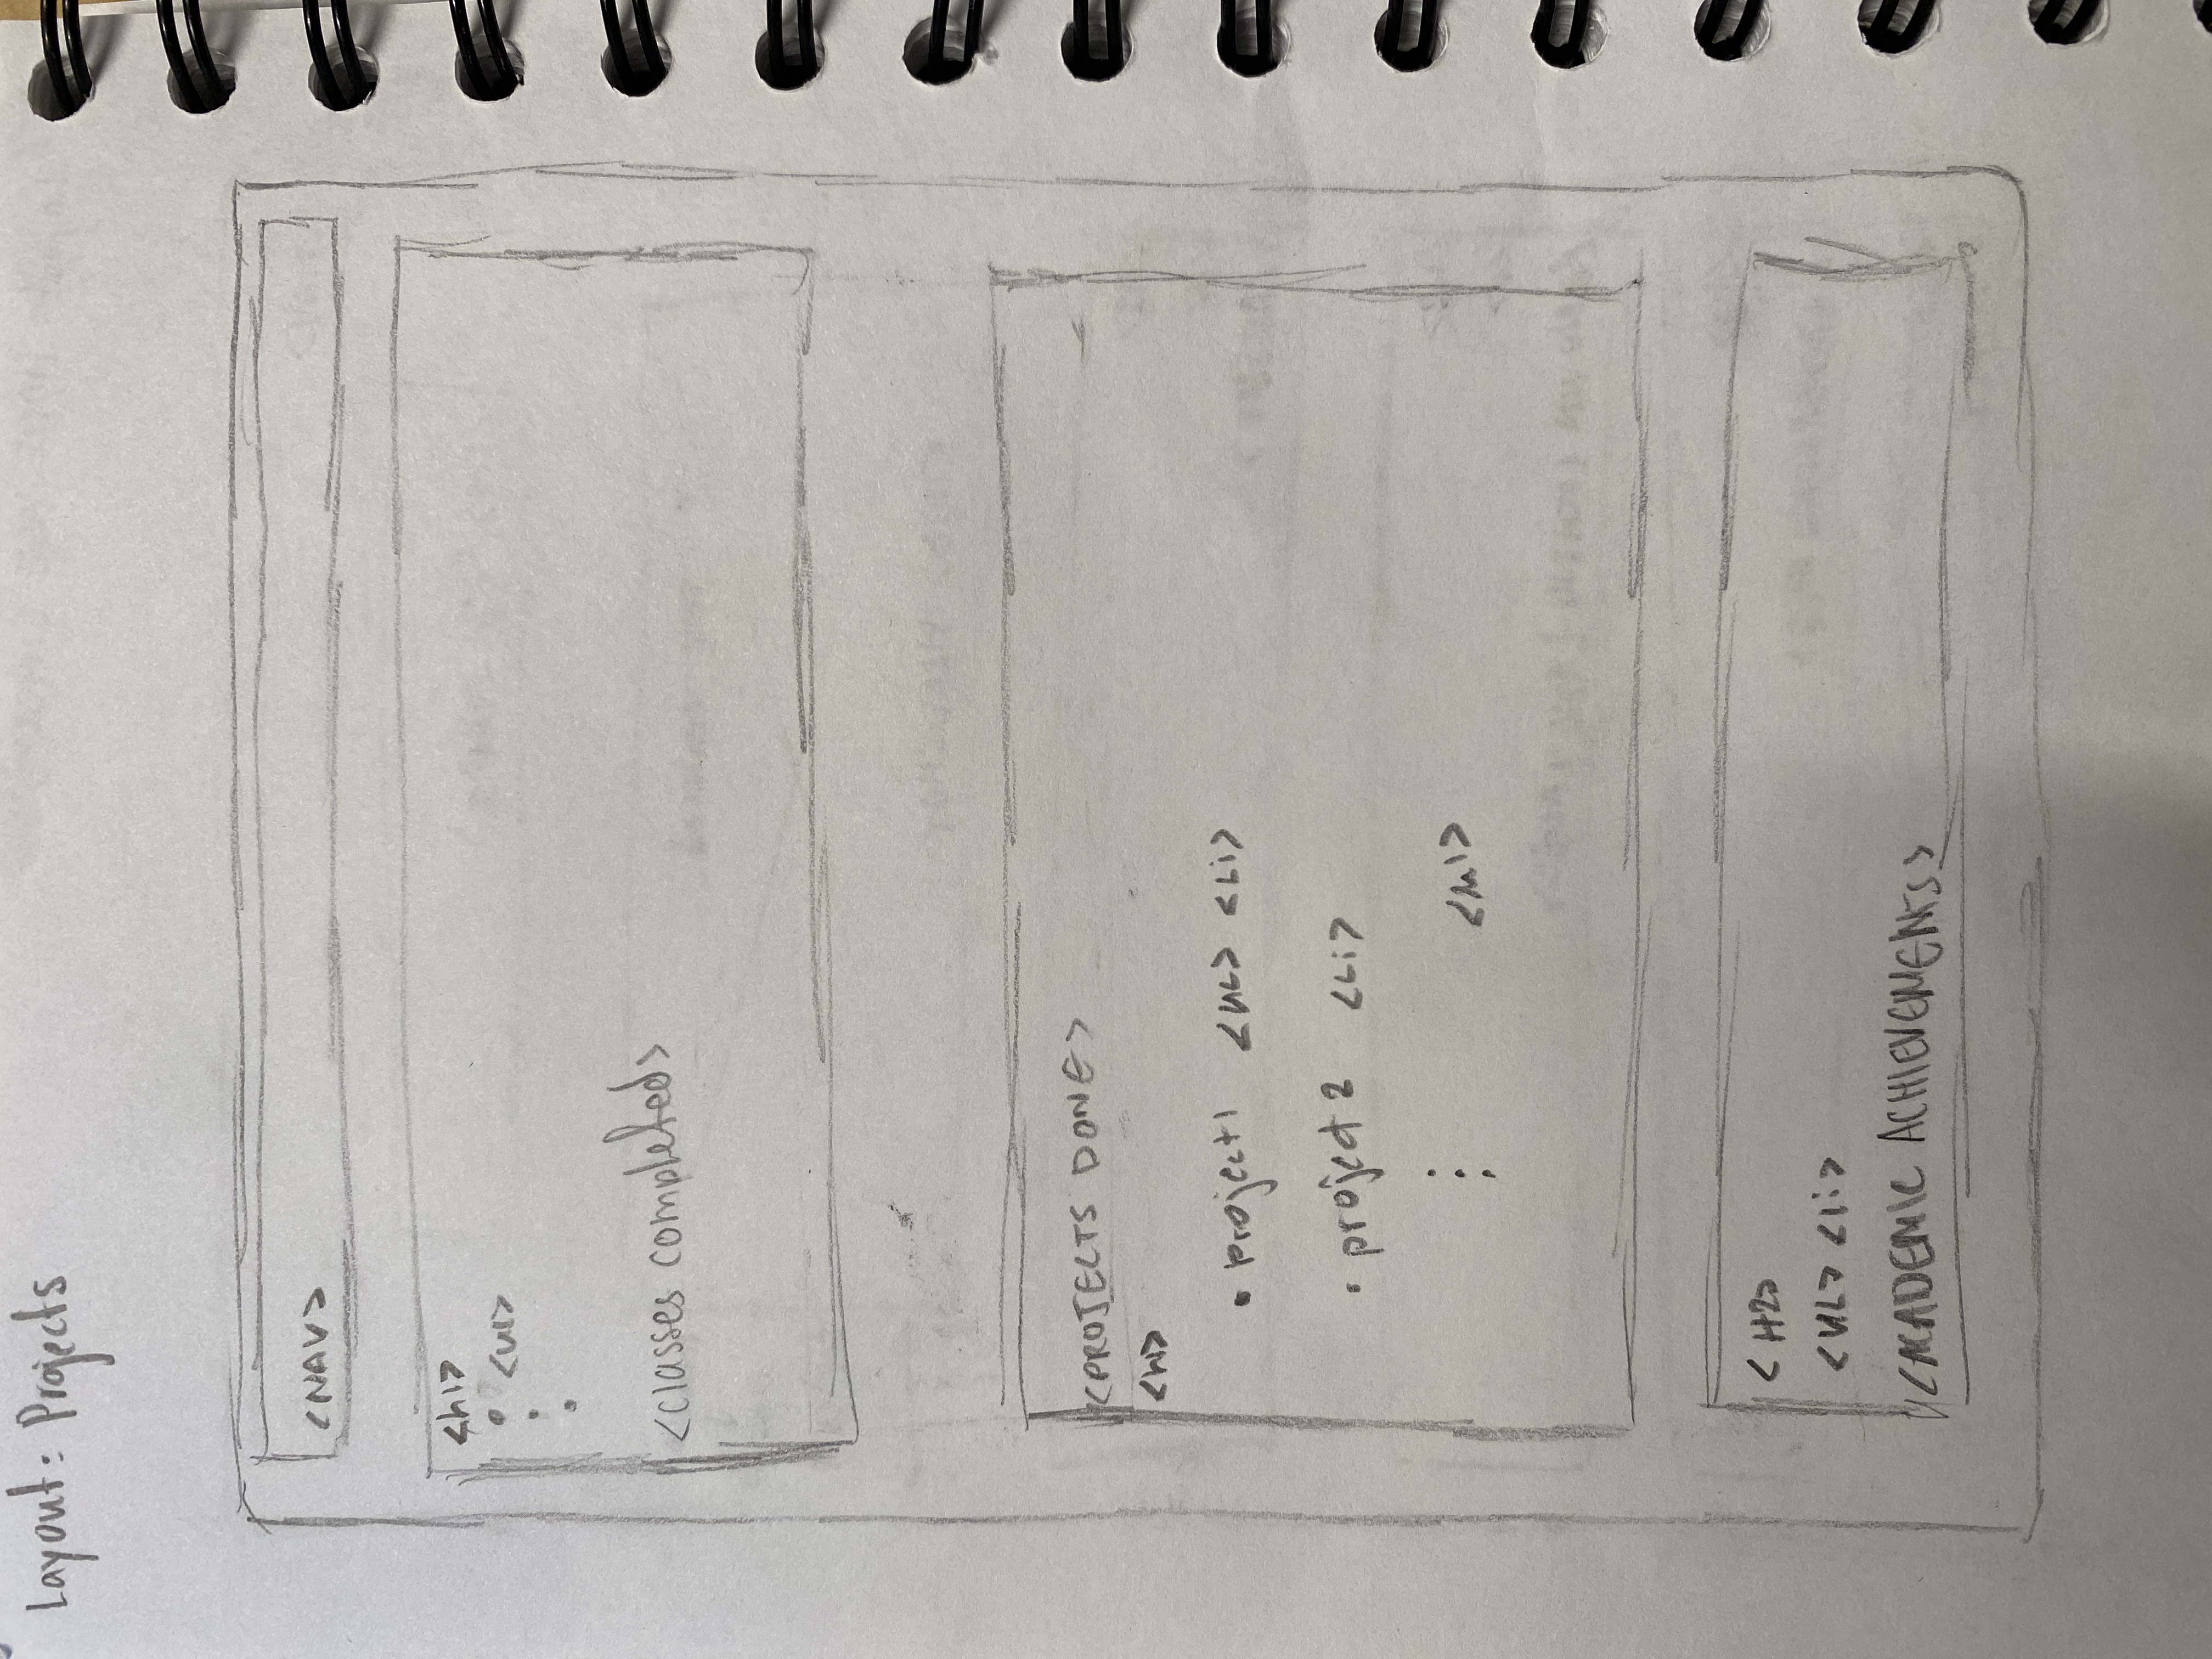 Layout: Projects
<NAV>
<h1>
• <ul>
•
•
<classes completed>
<PROJECTS DONE>
<h1>
• project1 <UL> <Li>
• project 2 <Li>
<H2>
<UL> <li>
<ACADEMIC ACHIEVEMENTS>